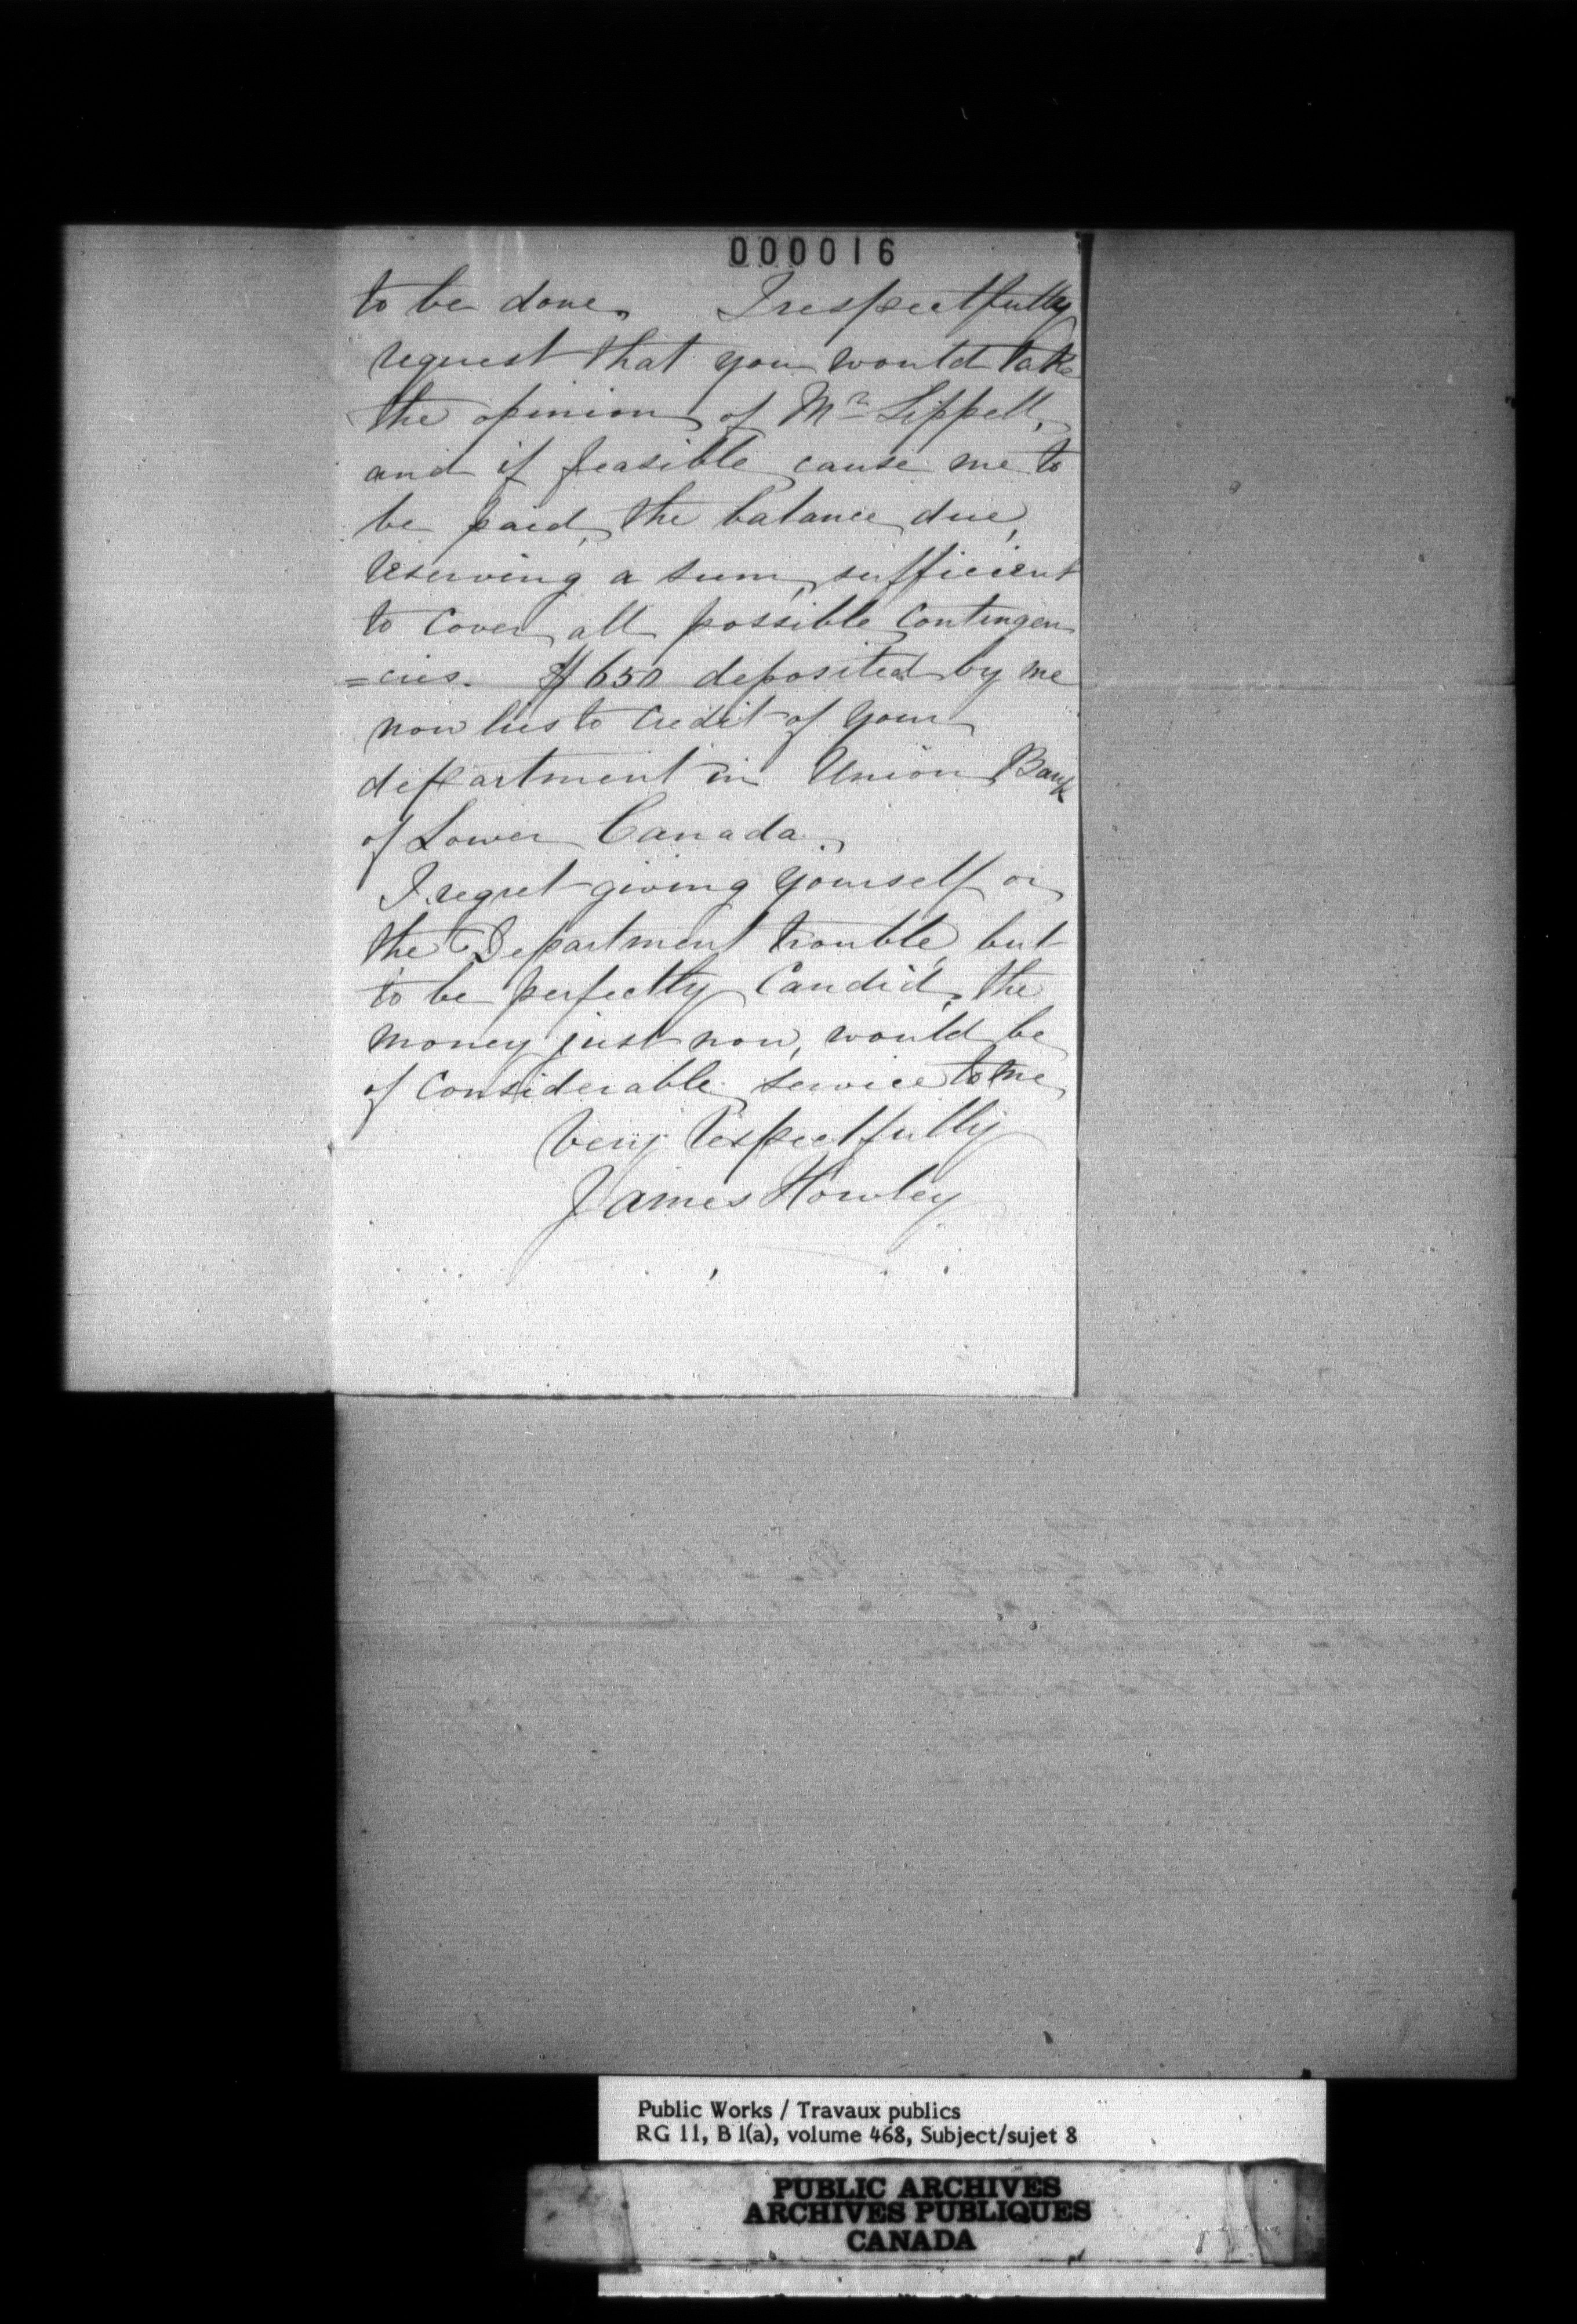 000016
to be done. I respectfully
request that you would take
the opinion of Mr Sippell,
and if feasible cause me to
be paid, the balance due,
reserving a sum, sufficient
to cover all possible contingen
=cies. $650 deposited by me
now lies to credit of your
department in Union Bank
of Lower Canada.
I regret giving yourself or
the Department trouble, but
to be perfectly Candid, the
money just now, would be
of considerable service to me
Very respectfully
James Howley
Public Works / Travaux publics
RG 11, B 1(a), volume 468, Subject/sujet 8
PUBLIC ARCHIVES
ARCHIVES PUBLIQUES
CANADA